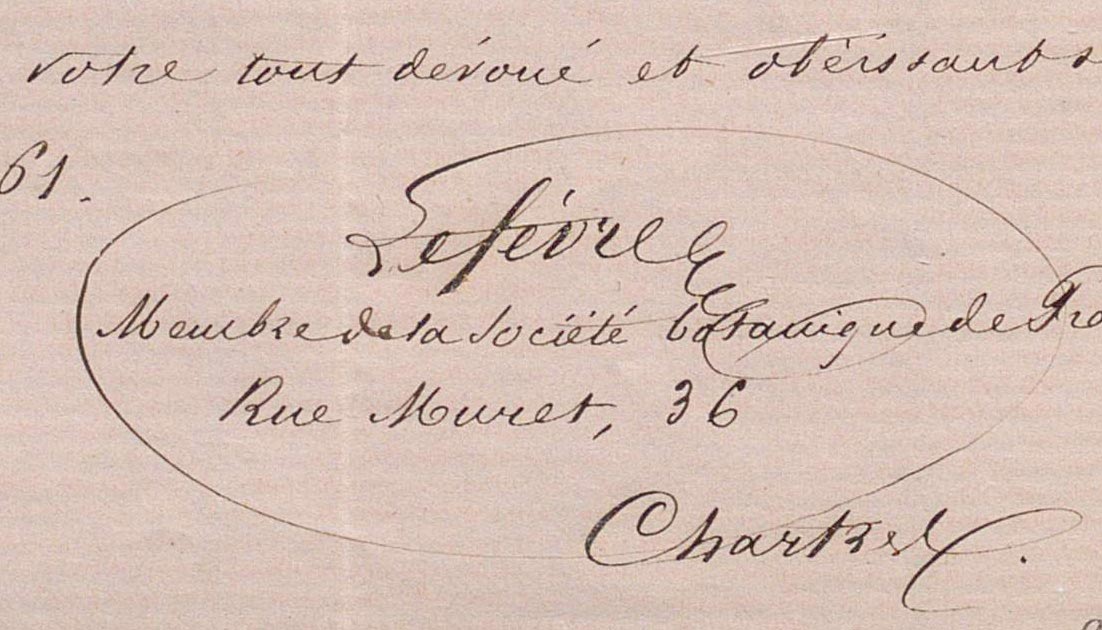 votre tout dévoué et obéissant s
61.
Lefèvre
Membre de la Société botanique de Fra
Rue Muret, 36
Chartres.